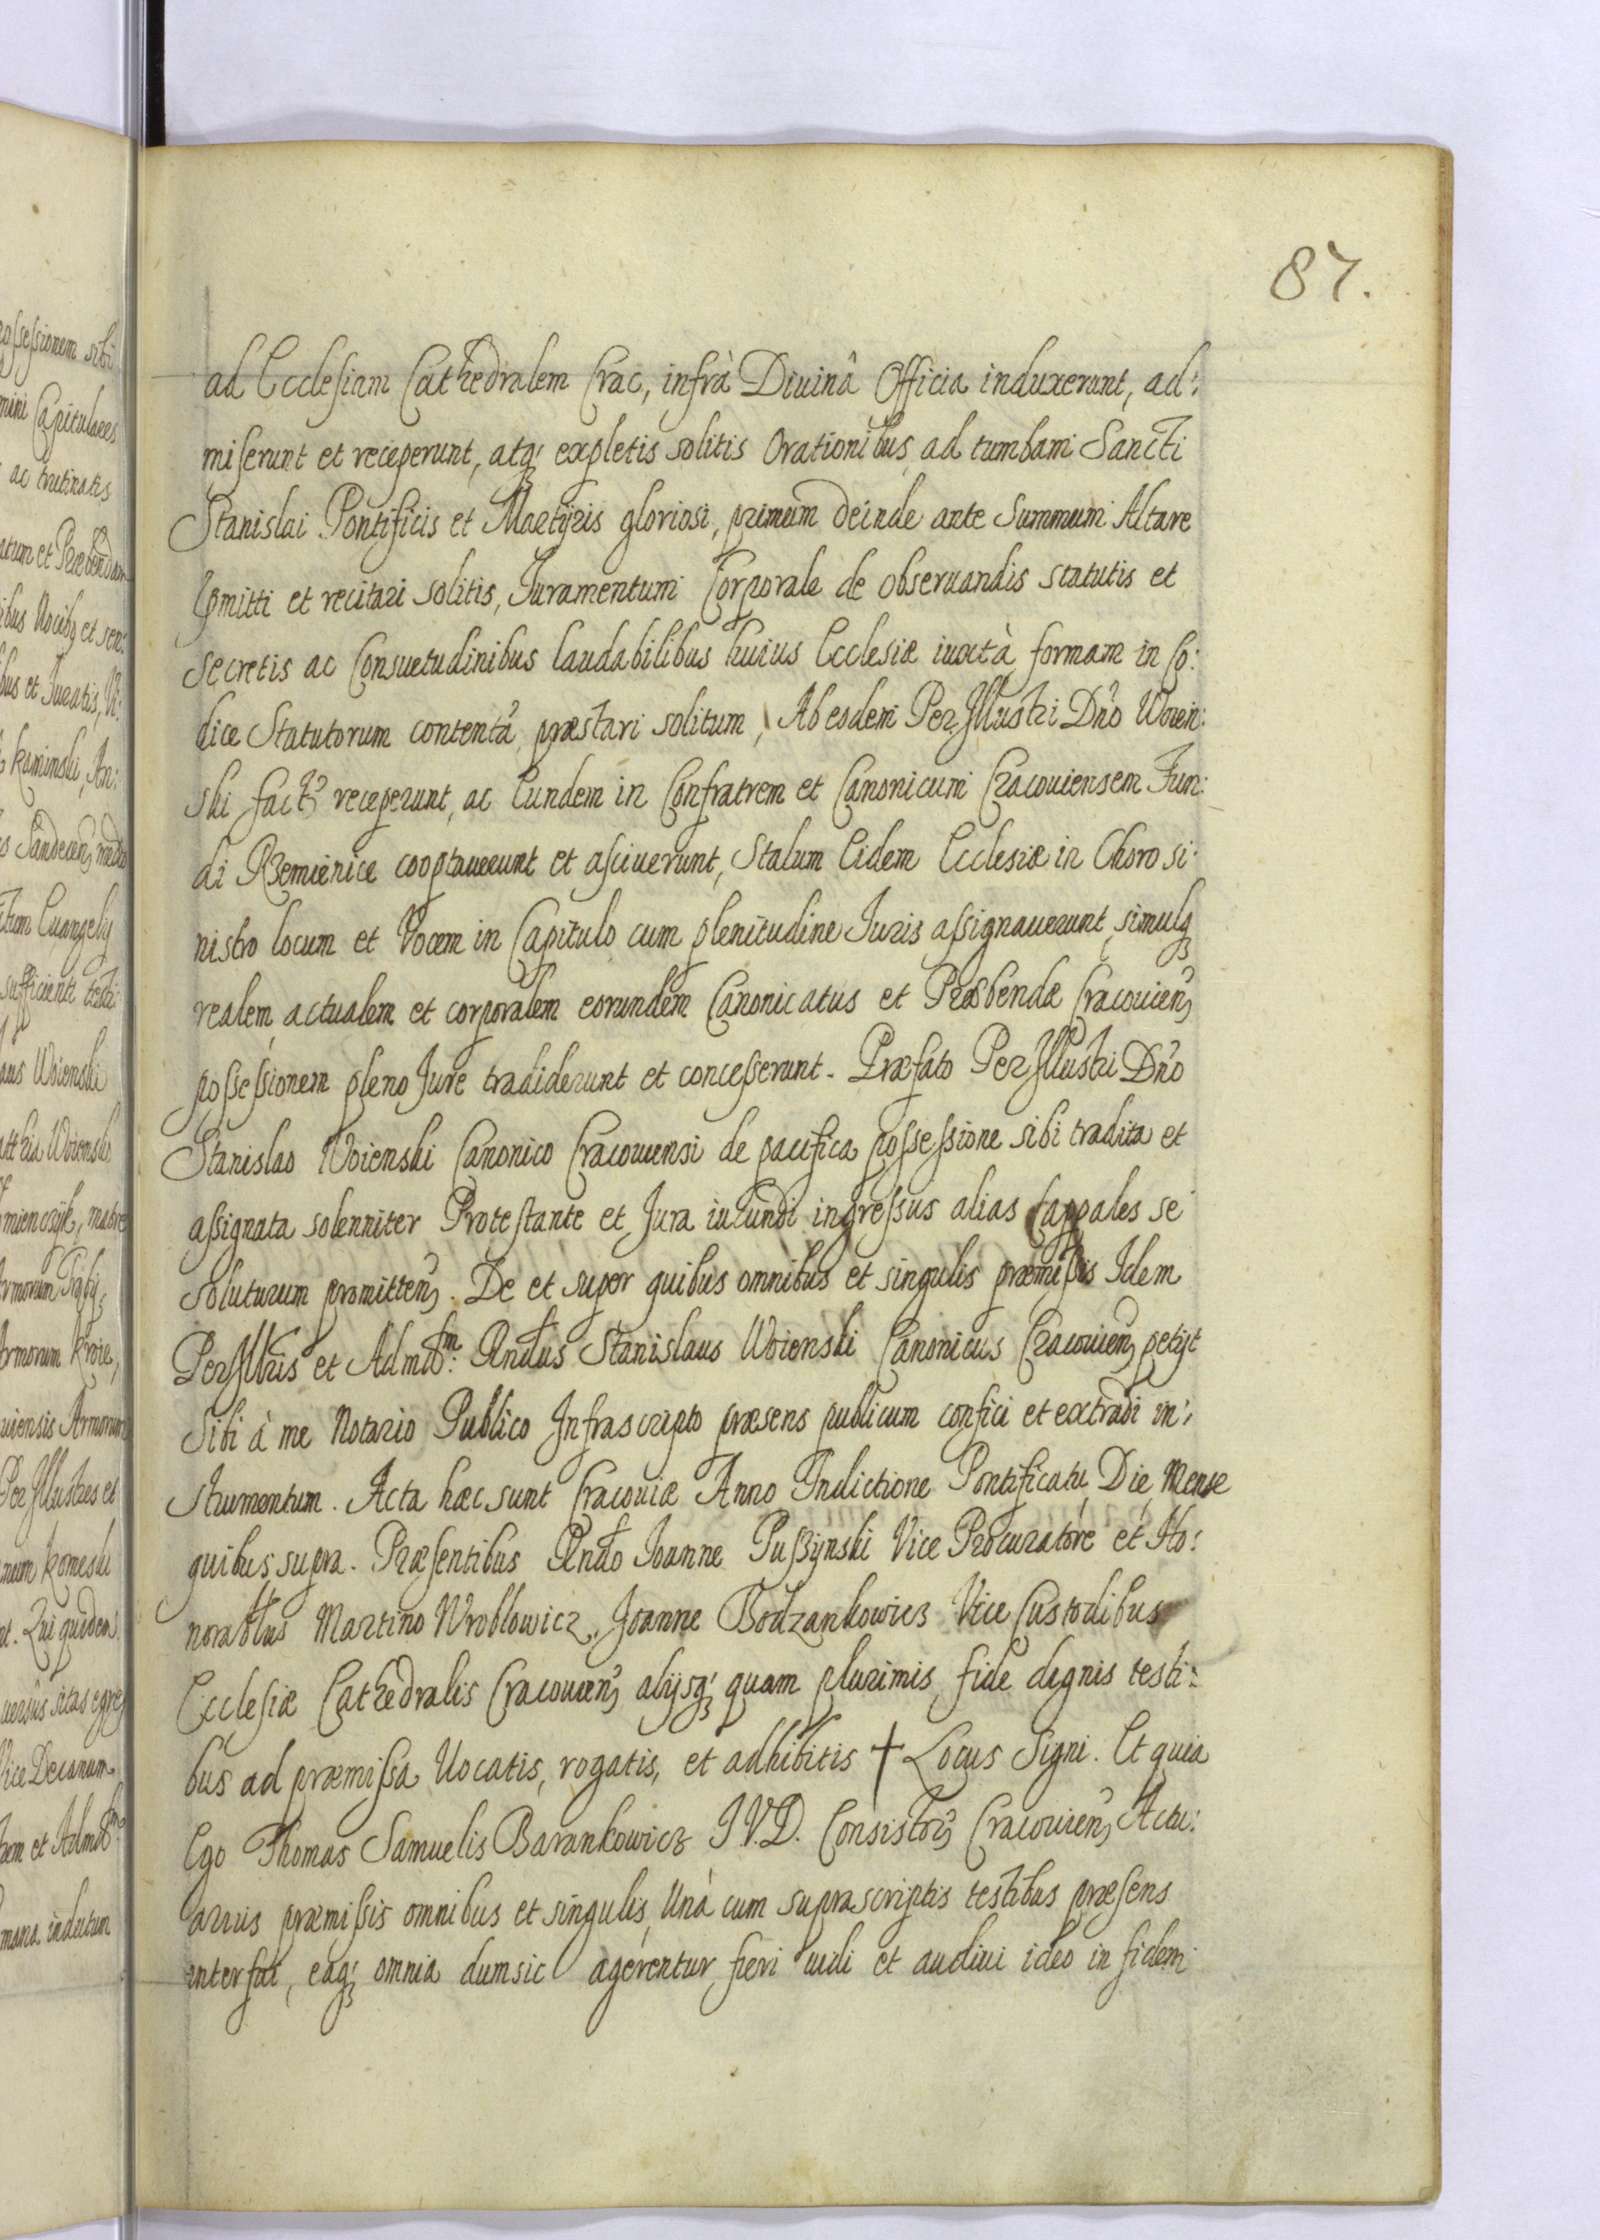 87.
ad Ecclesiam Cathedralem Crac, infrà Diuinâ Officia induxerunt, ad:
miserunt et receperunt, atq; expletis solitis Orationibus ad tumbam Sancti
Stanislai Pontificis et Martijris gloriosi, primum deinde ante Summum Altare
promitti et recitari solitis, Juramentum Corporale de obseruandis statutis et
secretis ac Consuetudinibus laudabilibus huius Ecclesiæ iuxtà formam in Co:
dice Statutorum contentã præstari solitum, Ab eodem PerJllustri Dño Woien:
ski fact receperunt, ac Eundem in Confratrem et Canonicum Cracouiensem Fun:
di Rzemienice cooptauerunt et asciuerunt, Stalum Eidem Ecclesiæ in Choro si:
nistro locum et Vocem in Capitulo cum plenitudine Juris assignauerunt, simulq;
realem actualem et corporalem eorundem Canonicatus et Præbendæ Cracouien,
possessionem pleno Jure tradiderunt et concesserunt. Præfato PerJllustri Dño
Stanislao Woienski Canonico Cracouiensi de pacifica possessione sibi tradita et
assignata solenniter Protestante et Jura iucundi ingressus alias Cappales se
soluturum promitten. De et super quibus omnibus et singulis præmissis Idem
PerJllris et Admdm: Rndus Stanislaus Woienski Canonicus Cracouien, petijt
Sibi à me Notario Publico Infrascripto præsens publicum confici et extradi in:
strumentum. Acta hæc sunt Cracouiæ Anno Indictione Pontificatu Die, Mense
quibus supra. Præsentibus Rndo Joanne Puszynski Vice Procuratore et Ho:
norablbus Martino Wroblowicz, Joanne Bodzankowicz Vice Custodibus
Ecclesiæ Cathedralis Cracouien, alijsq; quam plurimis fide dignis testi:
bus ad præmissa Uocatis, rogatis, et adhibitis † Locus Signi. Et quia
Ego Thomas Samuelis Barankowicz J.V.D. Consistor Cracouien, Actu:
arius præmissis omnibus et singulis, Unà cum suprascriptis testibus præsens
interfui, eaq; omnia dum sic agerentur fieri uidi et audiui ideo in fidem